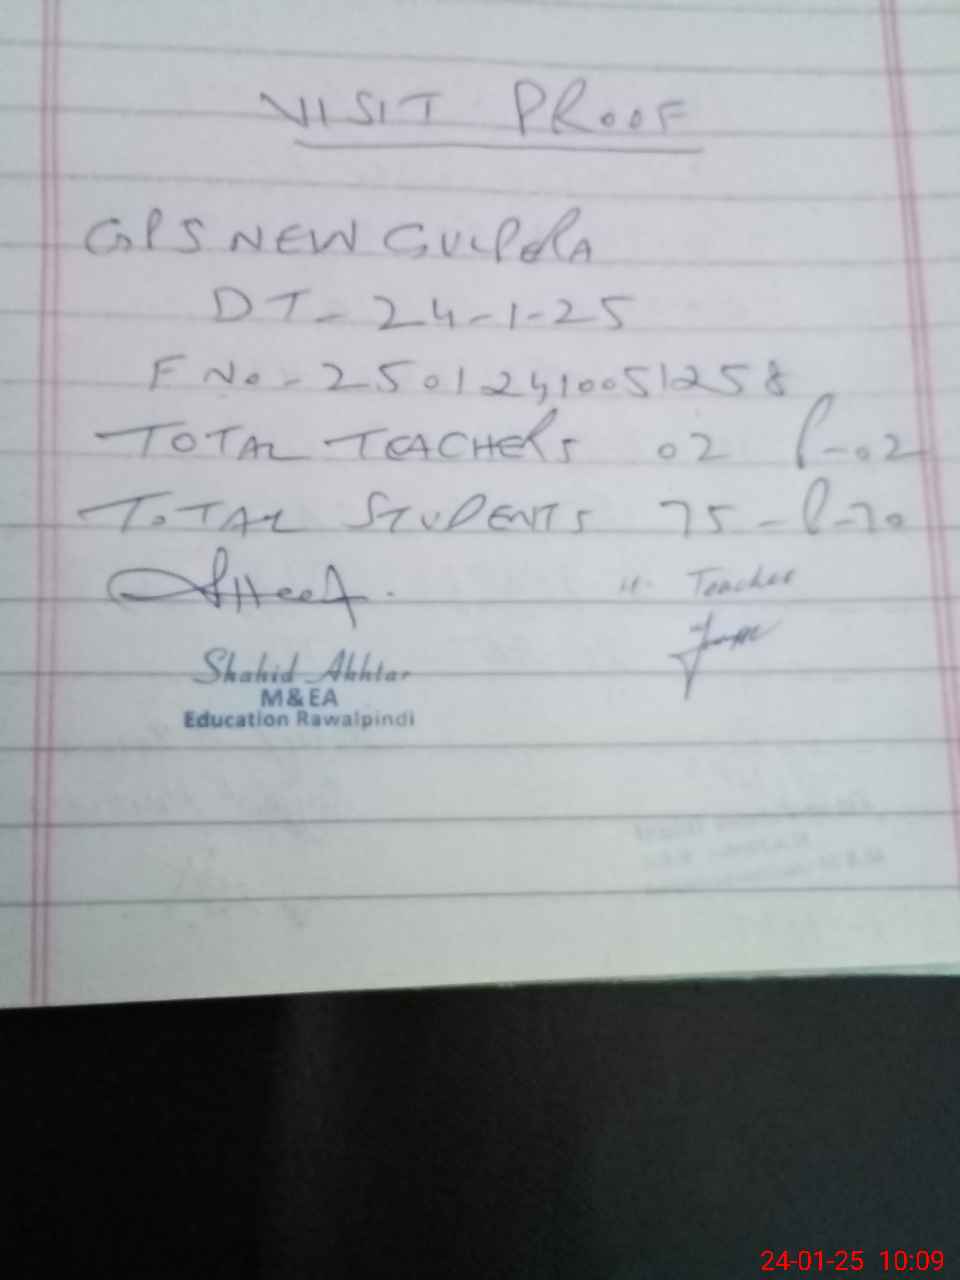 VISIT PROOF
GPS NEW GULPERA
DT - 24-1-25
F No - 25012410051258
TOTAL TEACHERS 02 P-02
TOTAL STUDENTS 75 - P-70
H. Teacher
Shahid Akhtar
M&EA
Education Rawalpindi
24-01-25 10:09